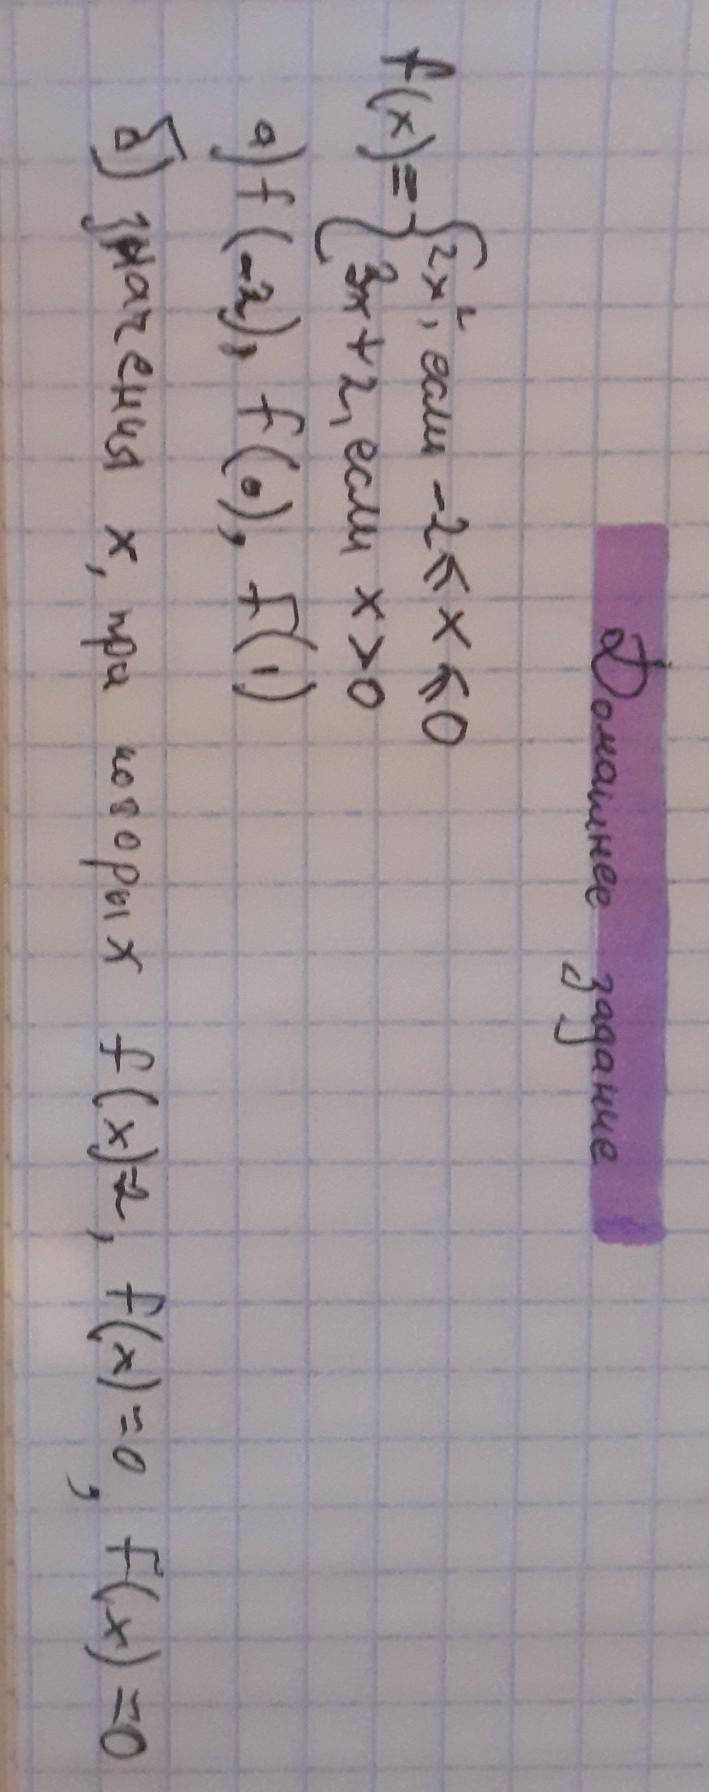 Домашнее задание
f(x) = { 2x², если -2 ≤ x ≤ 0
3x + 2, если x > 0
а) f(-2), f(0), f(1)
б) значения x, при которых f(x)=2, f(x)=0, f(x)=0